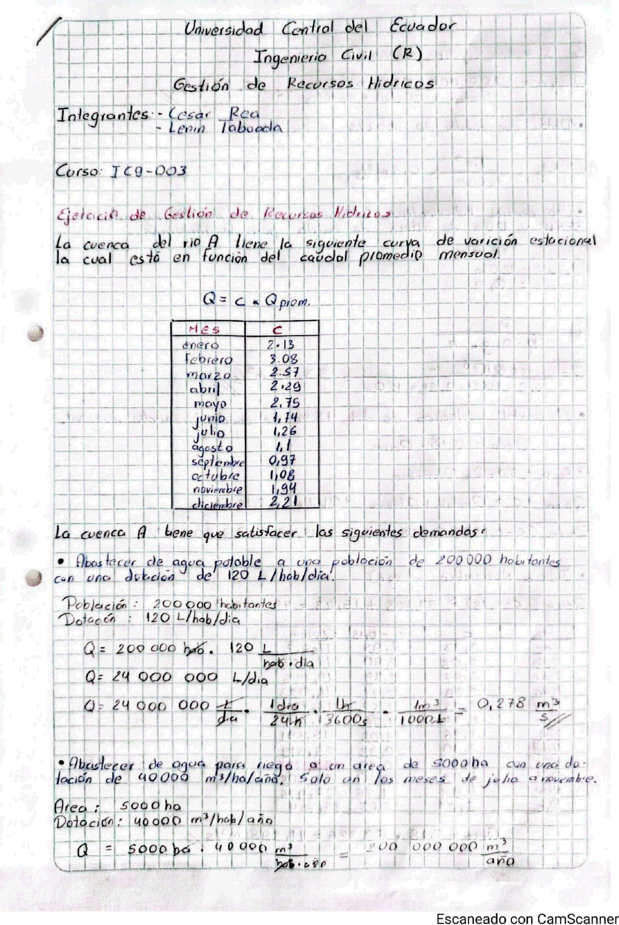 Universidad Central del Ecuador
Ingenieria Civil (R)
Gestión de Recursos Hidricos
Integrantes: - Cesar Rea
- Lenin Taboada
Curso: IC9-003
Ejercicio de Gestión de Recursos Hidricos
La cuenca del rio A tiene la siguiente curva de varición estacional
la cual está en función del caudal promedio mensual.
Q = c * Qprom.
Mes C
enero 2.13
febrero 3.08
marzo 2.57
abril 2.29
mayo 2,75
junio 1,74
julio 1,26
agosto 1,1
septiembre 0,97
octubre 1,08
noviembre 1,94
diciembre 2,21
La cuenca A tiene que satisfacer las siguientes demandas:
• Abastecer de agua potable a una población de 200000 habitantes
con una dotación de 120 L/hab/día.
Población: 200 000 habitantes
Dotación: 120 L/hab/dia
Q = 200 000 hab. 120 L/hab·dia
Q = 24 000 000 L/dia
Q = 24 000 000 L/dia · 1dia/24h · 1h/3600s · 1m³/1000L = 0,278 m³/s
• Abastecer de agua para riego a un area de 5000ha con una do-
tación de 40000 m³/ha/año. Solo en los meses de julio a noviembre.
Area: 5000 ha
Dotación: 40000 m³/hab/año
Q = 5000 ha · 40000 m³/hab·año = 200 000 000 m³/año
Escaneado con CamScanner